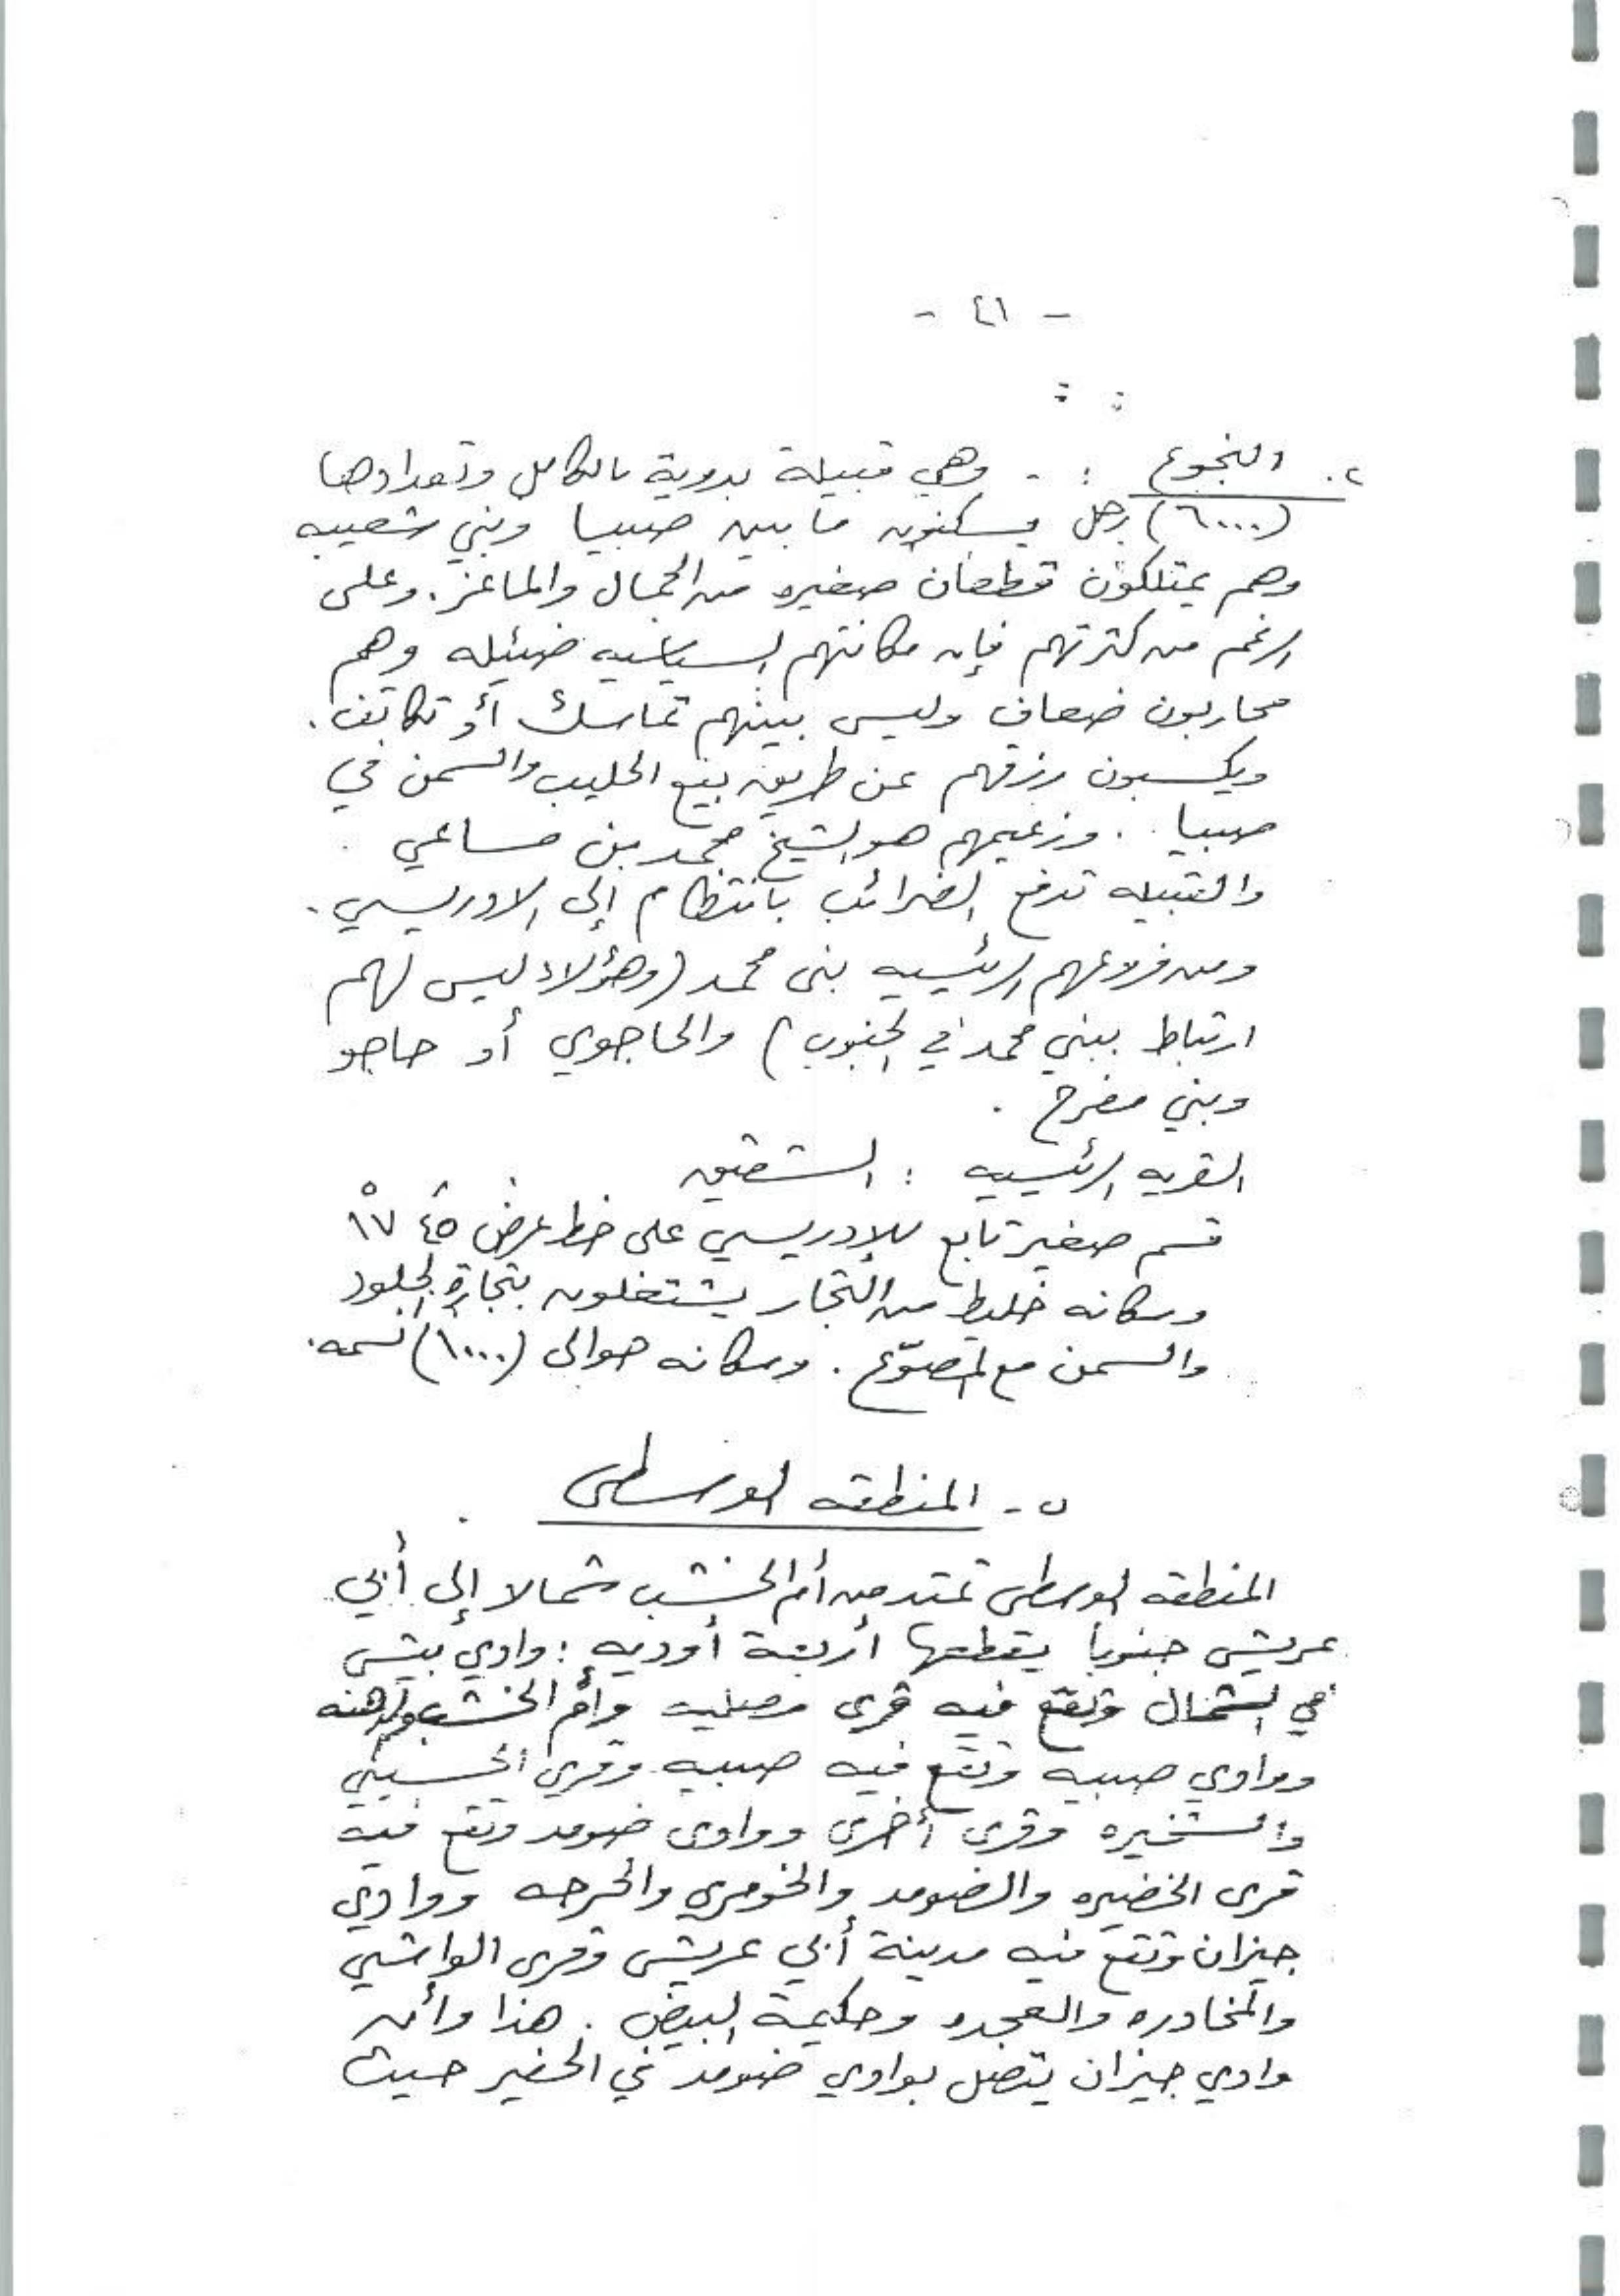 - ٤١ -
٢. النجوع : - وهي قبيلة بدوية بالكامل وتعدادها
(٦٠٠٠) رجل يسكنون ما بين صبيا وبني شعيبه
وهم يمتلكون قطعان صغيره من الجمال والماعز. وعلى
الرغم من كثرتهم فإن مكانتهم السياسيه ضئيله وهم
محاربون ضعاف وليس بينهم تماسك أو تكاتف.
ويكسبون رزقهم عن طريق بيع الحليب والسمن في
صبيا . وزعيمهم هو الشيخ محمد بن مساعي .
والقبيله تدفع الضرائب بانتظام إلى الادريسي.
ومن فروعهم الرئيسيه بنى محمد (وهؤلاء ليس لهم
ارتباط ببني محمد في الجنوب) والحاجوي أو حاجو
وبني مفرح .
القريه الرئيسيه : الشقيق
قسم صغير تابع للإدريسي على خط عرض ٤٥َ ١٧°
وسكانه خليط من التجار يشتغلون بتجارة الجلود
والسمن مع المصوّع. وسكانه حوالى (١٠٠٠) نسمه.
٥- المنطقه الوسطى
المنطقه الوسطى تمتد من أم الخشب شمالا إلى أبي
عريش جنوبا يقطعها أربعة أوديه : وادي بيش
في الشمال وتقع فيه قرى مصليه وأم الخشب
ووادي صبيه وتقع فيه صبيه وقرى الحسيني
والسخيره وقرى أخرى ووادى ضومد وتقع فيه
قرى الخضيره والضومد والخومري والحرجه ووادي
جيزان وتقع فيه مدينة أبي عريش وقرى الواشي
والمخادره والعجدره وحكيمة البيض. هذا وأن
وادي جيزان يتصل بوادي ضومد في الحفير حيث